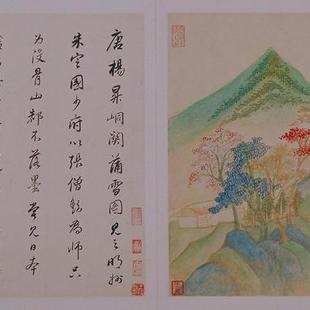 唐楊昇峒關蒲雪圖見之明州
朱定國少府以張僧繇為師只
為沒骨山都不落墨曾見日本